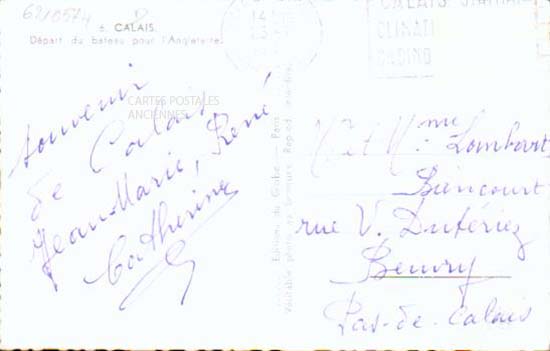 6210574
6. CALAIS.
Départ du bateau pour l'Angleterre
CALAIS
CLIMATI
CASINO
CARTES POSTALES
ANCIENNES
Souvenir
de Calais
Jean-Marie, René
Catherine
Editions du Globe - Paris
Véritable photo au bromure - Reprod. interdite
M. et Mme Lombart
Biencourt
rue V. Dutériez
Beuvry
Pas-de-Calais